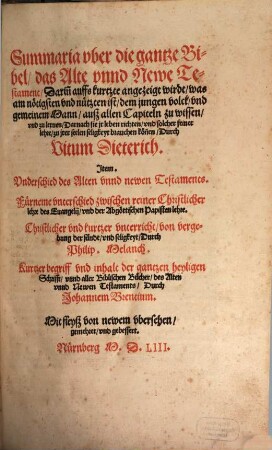 Summaria vber die gantze Bi-
bel/ das Alte vnnd Newe Te-
stament/ Darin̄ auffs kürtzte angezeigt wirdt/ was
am nötigsten vnd nützten ist/ dem jungen volck/ vnd
gemeinem Mann/ auß allen Capiteln zu wissen/
vnd zu lernen/ Darnach sie jr leben richten/ vnd solcher feiner
lehr/ zu jrer seelen seligkeyt brauchen köñen/ Durch
Vitum Dieterich.
Item.
Vnderschied des Alten vnnd newen Testaments.
Fürneme vnterschied zwischen reiner Christlicher
lehr des Euangelij/ vnd der Abgöttischen Papisten lehre.
Christlicher vnd kurtzer vnterricht/ von verge-
bung der sünde/ vnd seligkeyt/ Durch
Philip. Melanch.
Kurtzer begriff vnd inhalt der gantzen heyligen
Schrifft/ vnnd aller Biblischen Bücher/ des Alten
vnnd Newen Testaments/ Durch
Johannem Brentium.
Mit fleyß von newem vbersehen/
gemehret/ vnd gebessert.
Nürnberg M. D. LIII.